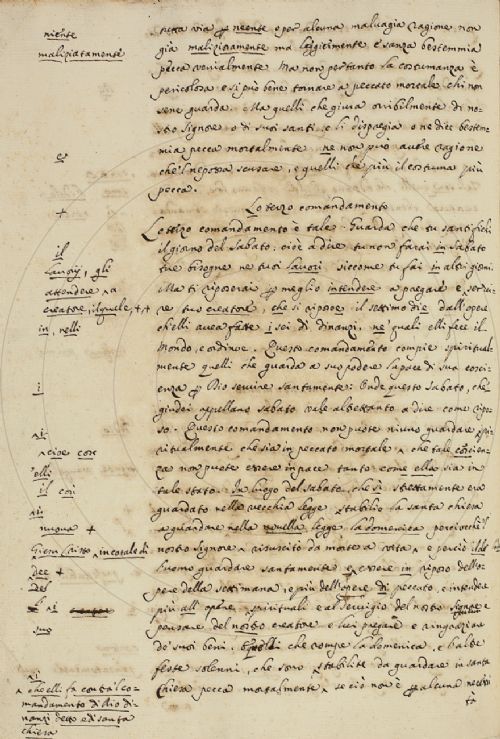 niente
maliziatamente
e
+
il
lavorij, gli
attendere
creatore, il quale,
in, nelli
i
cioè
elli
il così
nuova +
Giesu Cristo in cotale dì
dee +
del
che elli fa contra 'l co-
mandamento di Dio di-
nanzi detto e di santa
chiera
netta via per neente e per alcuna malvagia cagione non
già maliziosamente ma leggitimente e sanza bestemmia
pecca venialmente. Ma non pertanto la costumanza è
pericolosa, e si può bene tornare a peccato mortale chi non
sene guarda. Ma quelli che giura orribilmente di no-
stro Signore o di suoi santi, e li dispregia o ne dice bestem-
mia pecca mortalmente, ne non può avere cagione
che'l ne possa scusare, e quelli che più il costuma più
pecca.
Lo terzo comandamento
Lo terzo comandamento è tale. Guarda che tu santifichi
il giorno del Sabato: cioè a dire tu non farai in Sabato
tue bisogne ne tuoi lavori siccome tu fai in altri giorni.
Ma ti riposerai per meglio intendere a pregare e servi-
re tuo creatore, che si riposoe il settimo die dall'opere
ch'elli avea fatte i sei dì dinanzi, ne' quali elli fece il
Mondo, e ordinoe. Questo comandamento compie spiritual-
mente quelli che guarda a suo podere la pace di sua coscie-
nza per Dio servire santamente: Onde questo Sabato, che
giudei appellano sabato vale altrettanto a dire come ripo-
so. Questo comandamento non puote niuno guardare spi-
ritualmente che sia in peccato mortale, che tale coscien-
za non puote essere in pace tanto come ella sia in
tale stato. In luogo del sabato, che sì strettamente era
guardato nella vecchia legge, stabilio la santa chiera
a guardare nella novella legge la domenica perciocchè il
nostro Signore risuscitò da morte a vita, e perciò il de
l'uomo guardare santamente e essere in riposo dell'o-
pere della settimana, e più dell'opere di peccato, e intendere
più all'opere spirituali e al servigio del nostro Signore e
pensare del nostro creatore e lui pregare e ringraziare
de' suoi beni. E quelli che rompe la domenica, e l'altre
feste solenni, che sono stabilite da guardare in santa
Chiera pecca mortalmente, se ciò non è per alcuna necissi-
tà